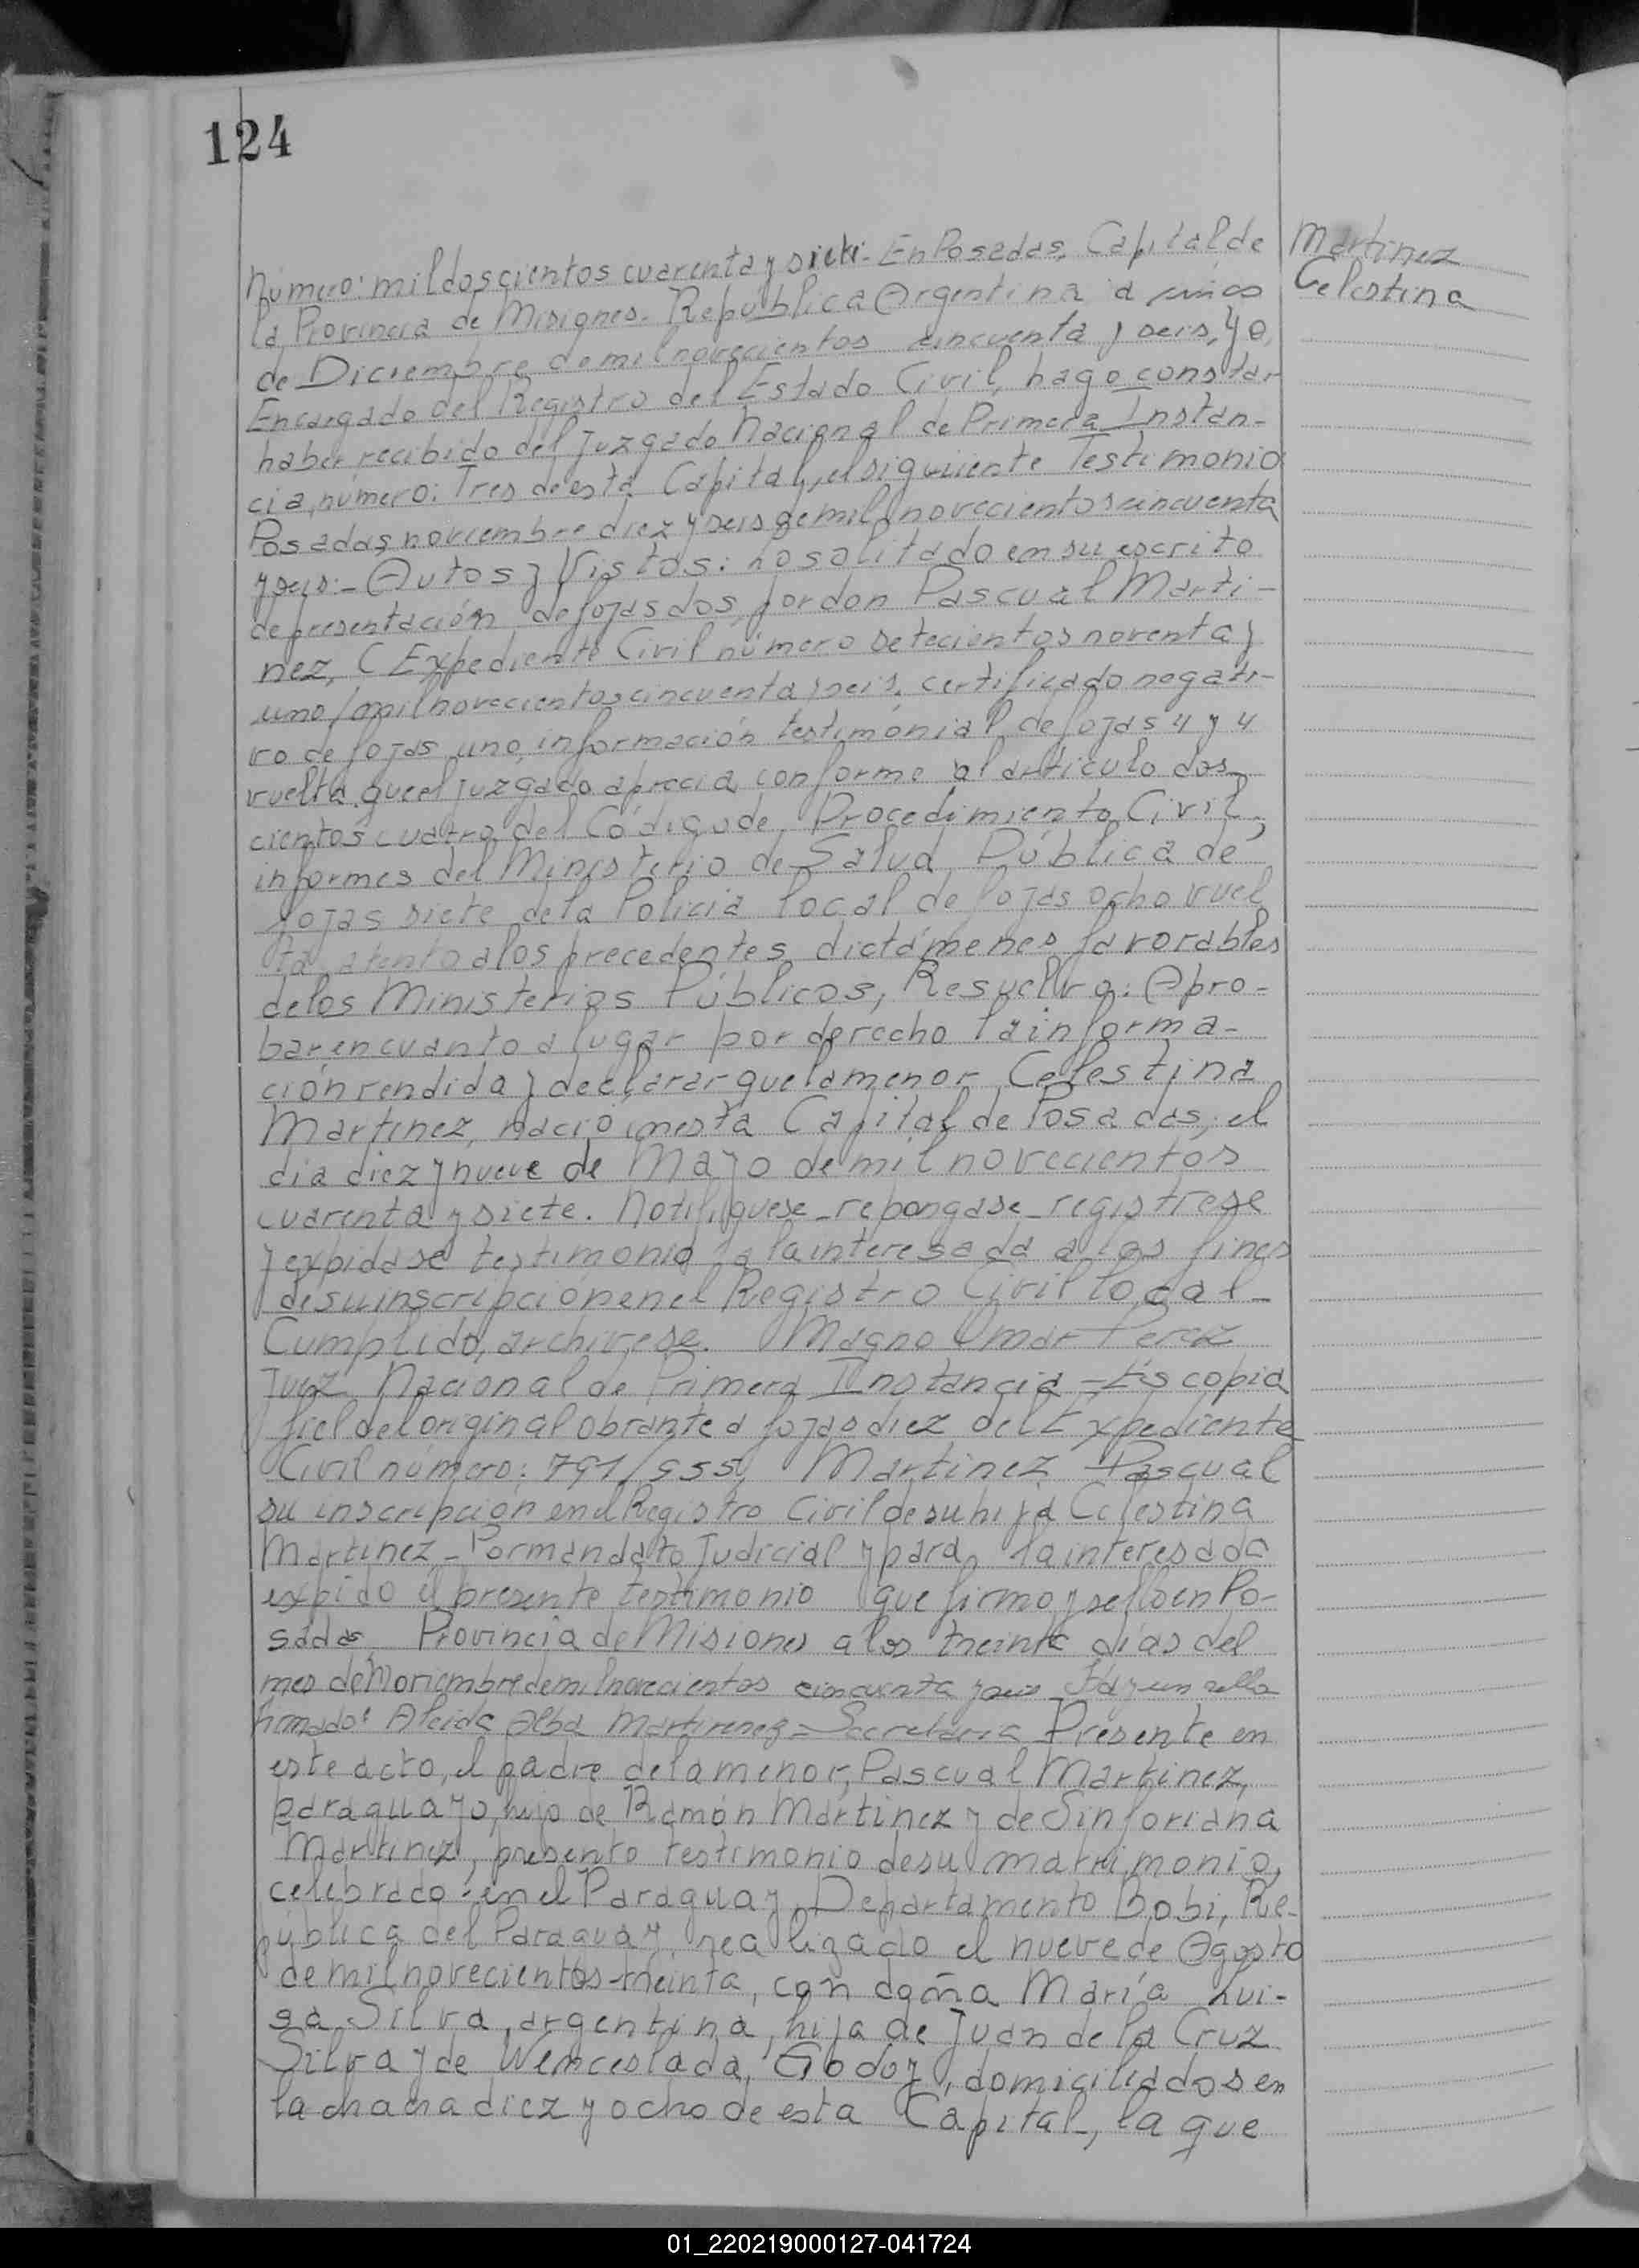 124
Martinez
Celestina
Número: mil doscientos cuarenta y siete- En Posadas, Capital de
la Provincia de Misiones- República Argentina a cinco
de Diciembre de mil novecientos cincuenta y seis, Yo,
Encargado del Registro del Estado Civil, hago constar
haber recibido del Juzgado Nacional de Primera Instan-
cia, número: Tres de esta Capital, el siguiente Testimonio
Posadas, noviembre diez y seis de mil novecientos cincuenta
y seis:- Autos y Vistos: lo solitado en su escrito
de presentación de fojas dos, por don Pascual Marti-
nez, (Expediente Civil número setecientos noventa y
uno/mil novecientos cincuenta y seis, certificado negati-
vo de fojas uno, información testimónial de fojas 4 y 4
vuelta que el juzgado aprecia conforme al articulo dos
cientos cuatro del Código de Procedimiento Civil,
informes del Ministerio de Salud Pública de
fojas siete de la Policia local de fojas ocho vuel
ta, atento a los precedentes dictámenes favorables
de los Ministerios Públicos, Resuelvo: Apro-
bar en cuanto a lugar por derecho la informa-
ción rendida y declarar que la menor Celestina
Martinez, nació en esta Capital de Posadas, el
dia diez y nueve de Mayo de mil novecientos
cuarenta y siete. Notifiquese - repongase - registrese
y expidase testimonio a la interesada a los fines
de su inscripción en el Registro Civil local-
Cumplido, archivese. Magno Omar Perez
Juez Nacional de Primera Instancia - Es copia
fiel del original obrante a fojas diez del Expediente
Civil número: 791/955, Martinez Pascual
su inscripción en el Registro Civil de su hija Celestina
Martinez - Por mandato Judicial y para la interesada
expido el presente testimonio que firmo y sello en Po-
sadas, Provincia de Misiones a los treinta días del
mes de Noviembre de mil novecientos cincuenta y seis - Hay un sello
firmado: Aleida Alba Martirenez = Secretaria - Presente en
este acto, el padre de la menor, Pascual Martinez,
paraguayo, hijo de Ramón Martinez y de Sinforiana
Martinez, presento testimonio de su matrimonio,
celebrado: en el Paraguay, Departamento Bobi, Re-
pública del Paraguay, realizado el nueve de Agosto
de mil novecientos treinta, con doña María Lui-
sa Silva, argentina, hija de Juan de la Cruz
Silva y de Wenceslada Godoy, domiciliados en
la chacra diez y ocho de esta Capital, la que
01_220219000127-041724